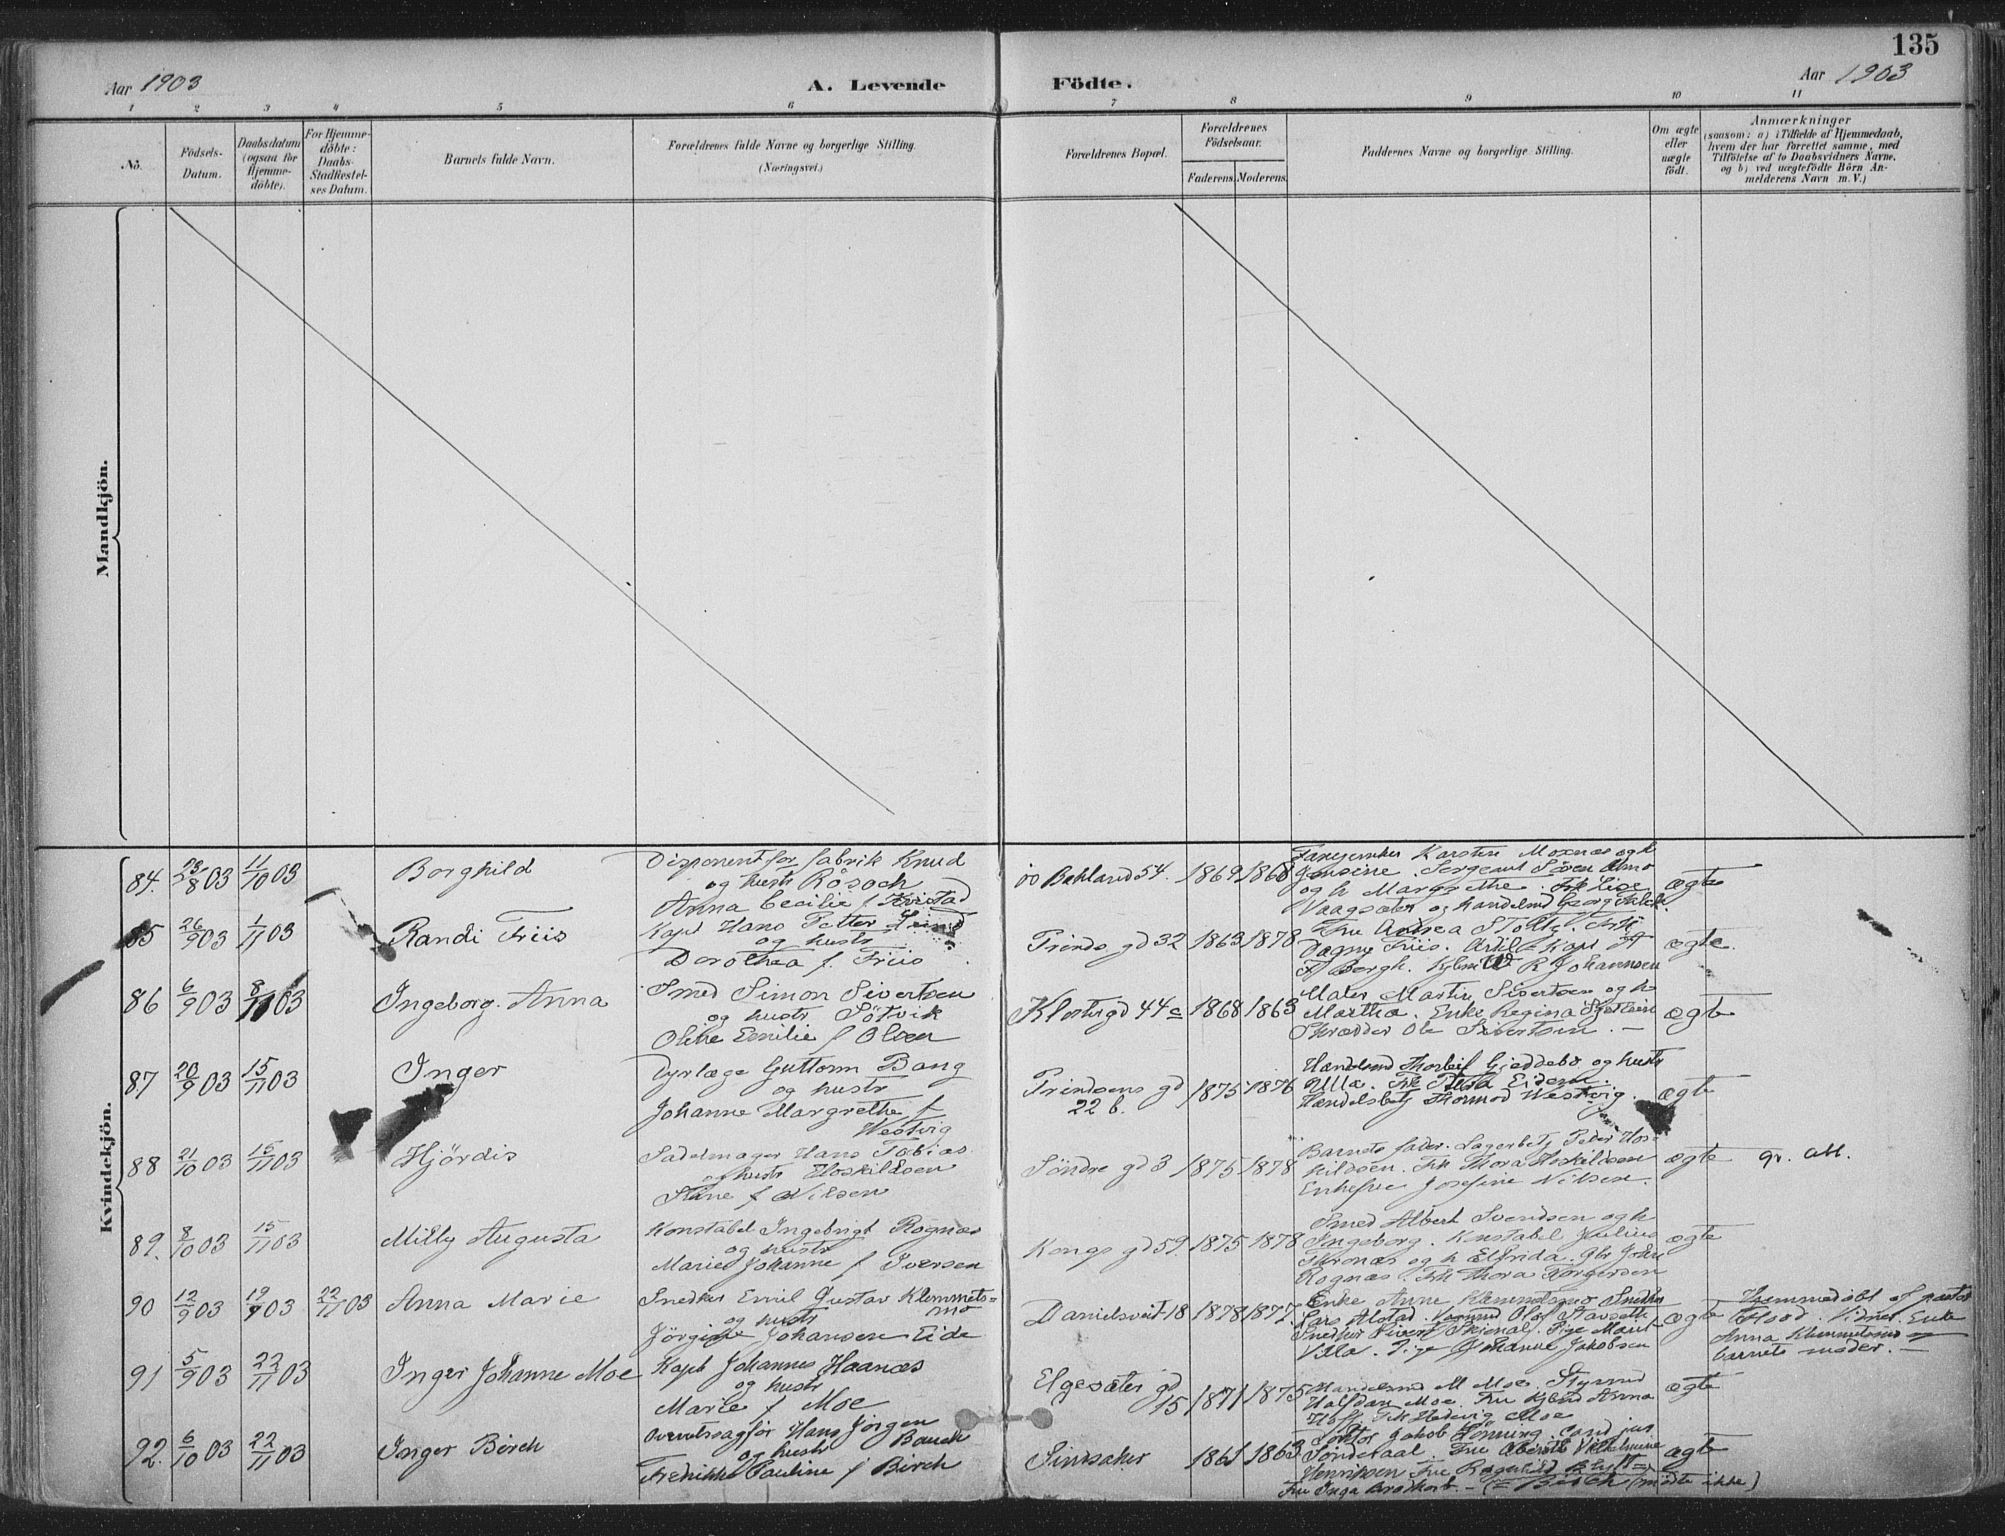 135
Aar 1903
A. Levende
Födte.
Aar 1903
1 2 3 4 5 6 7 8 9 10 11
No.
Födsels-
Datum.
Daabsdatum
(ogsaa for
Hjemme-
döbte).
For Hjemme-
döbte:
Daabs-
Stadfæstel-
ses Datum.
Barnets fulde Navn.
Forældrenes fulde Navne og borgerlige Stilling.
(Næringsvei.)
Forældrenes Bopæl.
Forældrenes
Födselsaar.
Faderens. Moderens.
Faddernes Navne og borgerlige Stilling.
Om ægte
eller
uægte
födt.
Anmærkninger
(saasom: a) i Tilfælde af Hjemmedaab,
hvem der har forrettet samme, med
Tilföielse af to Daabsvidners Navne,
og b) ved uægtefödte Börn An-
melderens Navn m. V.)
Mandkjön.
Kvindekjön.
84.
11/10 03
Borghild
Disponent for fabrik Knud
og hustr Rösoch
Anna Cecilie f
Bakland 54.
1869 1868
Karsten Moxnæs og h
Jensine. Sergeant
og h Margrethe.
Vaagsæter og handelsmd Georg
ægte
85
26/9 03
1/11 03
Randi Friis
Kapt Hans Petter
og hustr
Dorothea f. Friis
Prinds gd 32
1863 1878
Fru
Dagny Friis. Kapt
F Bergh. R Johannsen
ægte.
86
6/9 03
8/11 03
Ingeborg Anna
Smed Simon Sivertsen
og hustr Sötvik
Oline Emilie f Olsen
Klostergd 44c
1868 1863
Maler Martin Sivertsen og h
Martha. Enke Regina
Skrædder Ole Sivertsen. —
ægte
87
20/9 03
15/11 03
Inger
Dyrlæge Guttorm Bang
og hustr
Johanne Margrethe f
Westvig
Prindsens gd
22 b.
1875 1876
Handelsmd Thorleif Gjeddebo og hustr
Ulla. Frk Eidem.
Handelsbetj Thormod Westvig.
ægte
88
21/10 03
15/11 03
Hjördis
Sadelmager Hans Tobias
og hustr Hoskildsen
f Nilsen
Söndre gd 3
1875 1878
Barnets fader. Lagerbetj Peder Hos-
kildsen. Frk Thora Hoskildsen
Enkefru Josefine Nilsen.
ægte
gr. att.
89.
8/10 03
15/11 03
Milly Augusta
Konstabel Ingebrigt Rognæs
og hustr
Marie Johanne f Iversen
Kongs gd 59.
1875 1878
Smed Albert Svendsen og h
Ingeborg. Konstabel Julius
og h Elfrida. John
Rognæs Frk Thora
ægte
90
12/9 03
03
22/11 03
Anna Marie
Snedker Emil Gustav Klemmets=
mo
og hustr
Jörgine Johansen Eide
Danielsveit 18
1878 1877
Enke Anne Klemmetsmo Snedker
Lars Alstad. Olaf
Snedker Sivert
Villa. Pige Johanne Jakobsen
ægte
Hjemmedöbt af pastor
Flood. Vidner: Enke
Anna Klemmetsmo og
barnets moder. —
91
5/9 03
22/11 03
Inger Johanne Moe
Kapt Johannes Haanæs
og hustr
Marie f Moe
Elgesæter gd
15
1871 1875
Handelsmd M Moe.
Halfdan Moe. Fru Anna
Hoff. Frk Hedevig Moe
ægte
92.
6/10 03
22/11 03
Inger Birch
Overretssagför Hans Jörgen
og hustr Bauck
Fredrikke Pauline f Birch
Sinsaker
1861 1863
Doktor Jakob Hönning. Cand jur
Fru Oberstl Vilhelmine
Henriksen Fru Ragnhild
Fru Inga — Birch (mödte ikke)
ægte